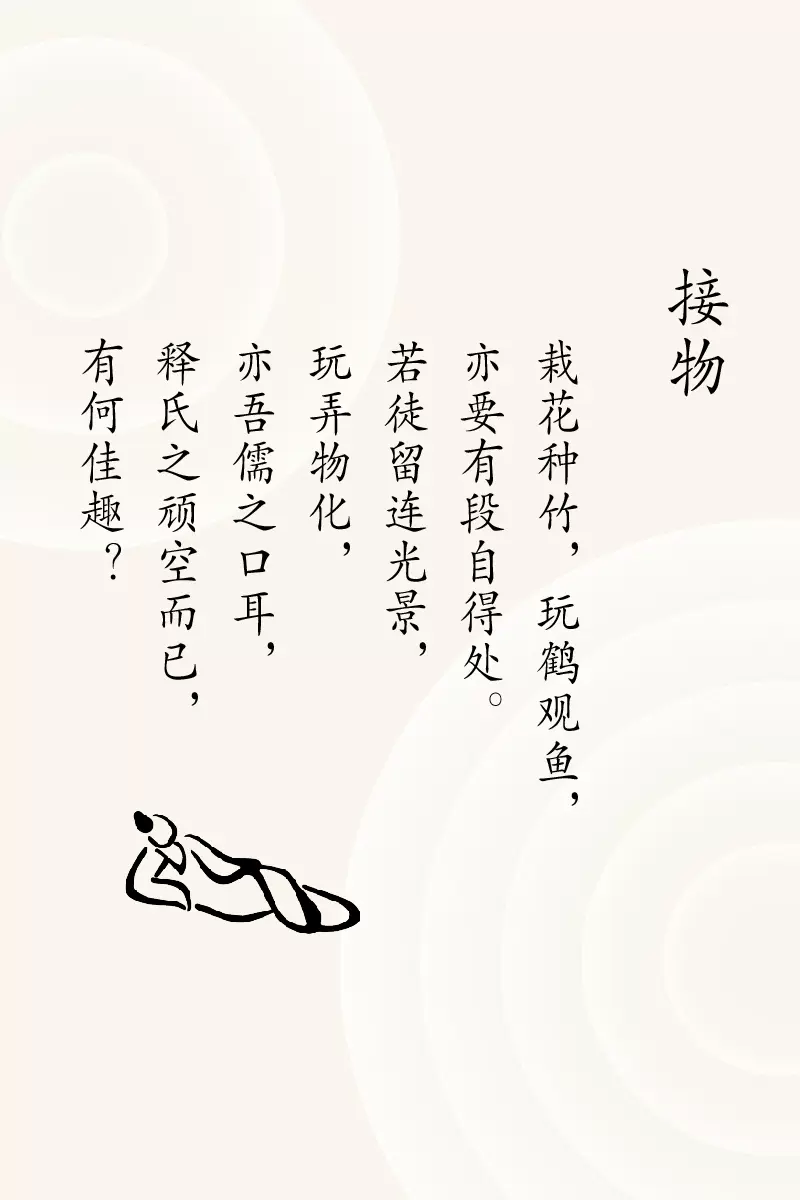 接物
栽花种竹，玩鹤观鱼，
亦要有段自得处。
若徒留连光景，
玩弄物化，
亦吾儒之口耳，
释氏之顽空而已，
有何佳趣？